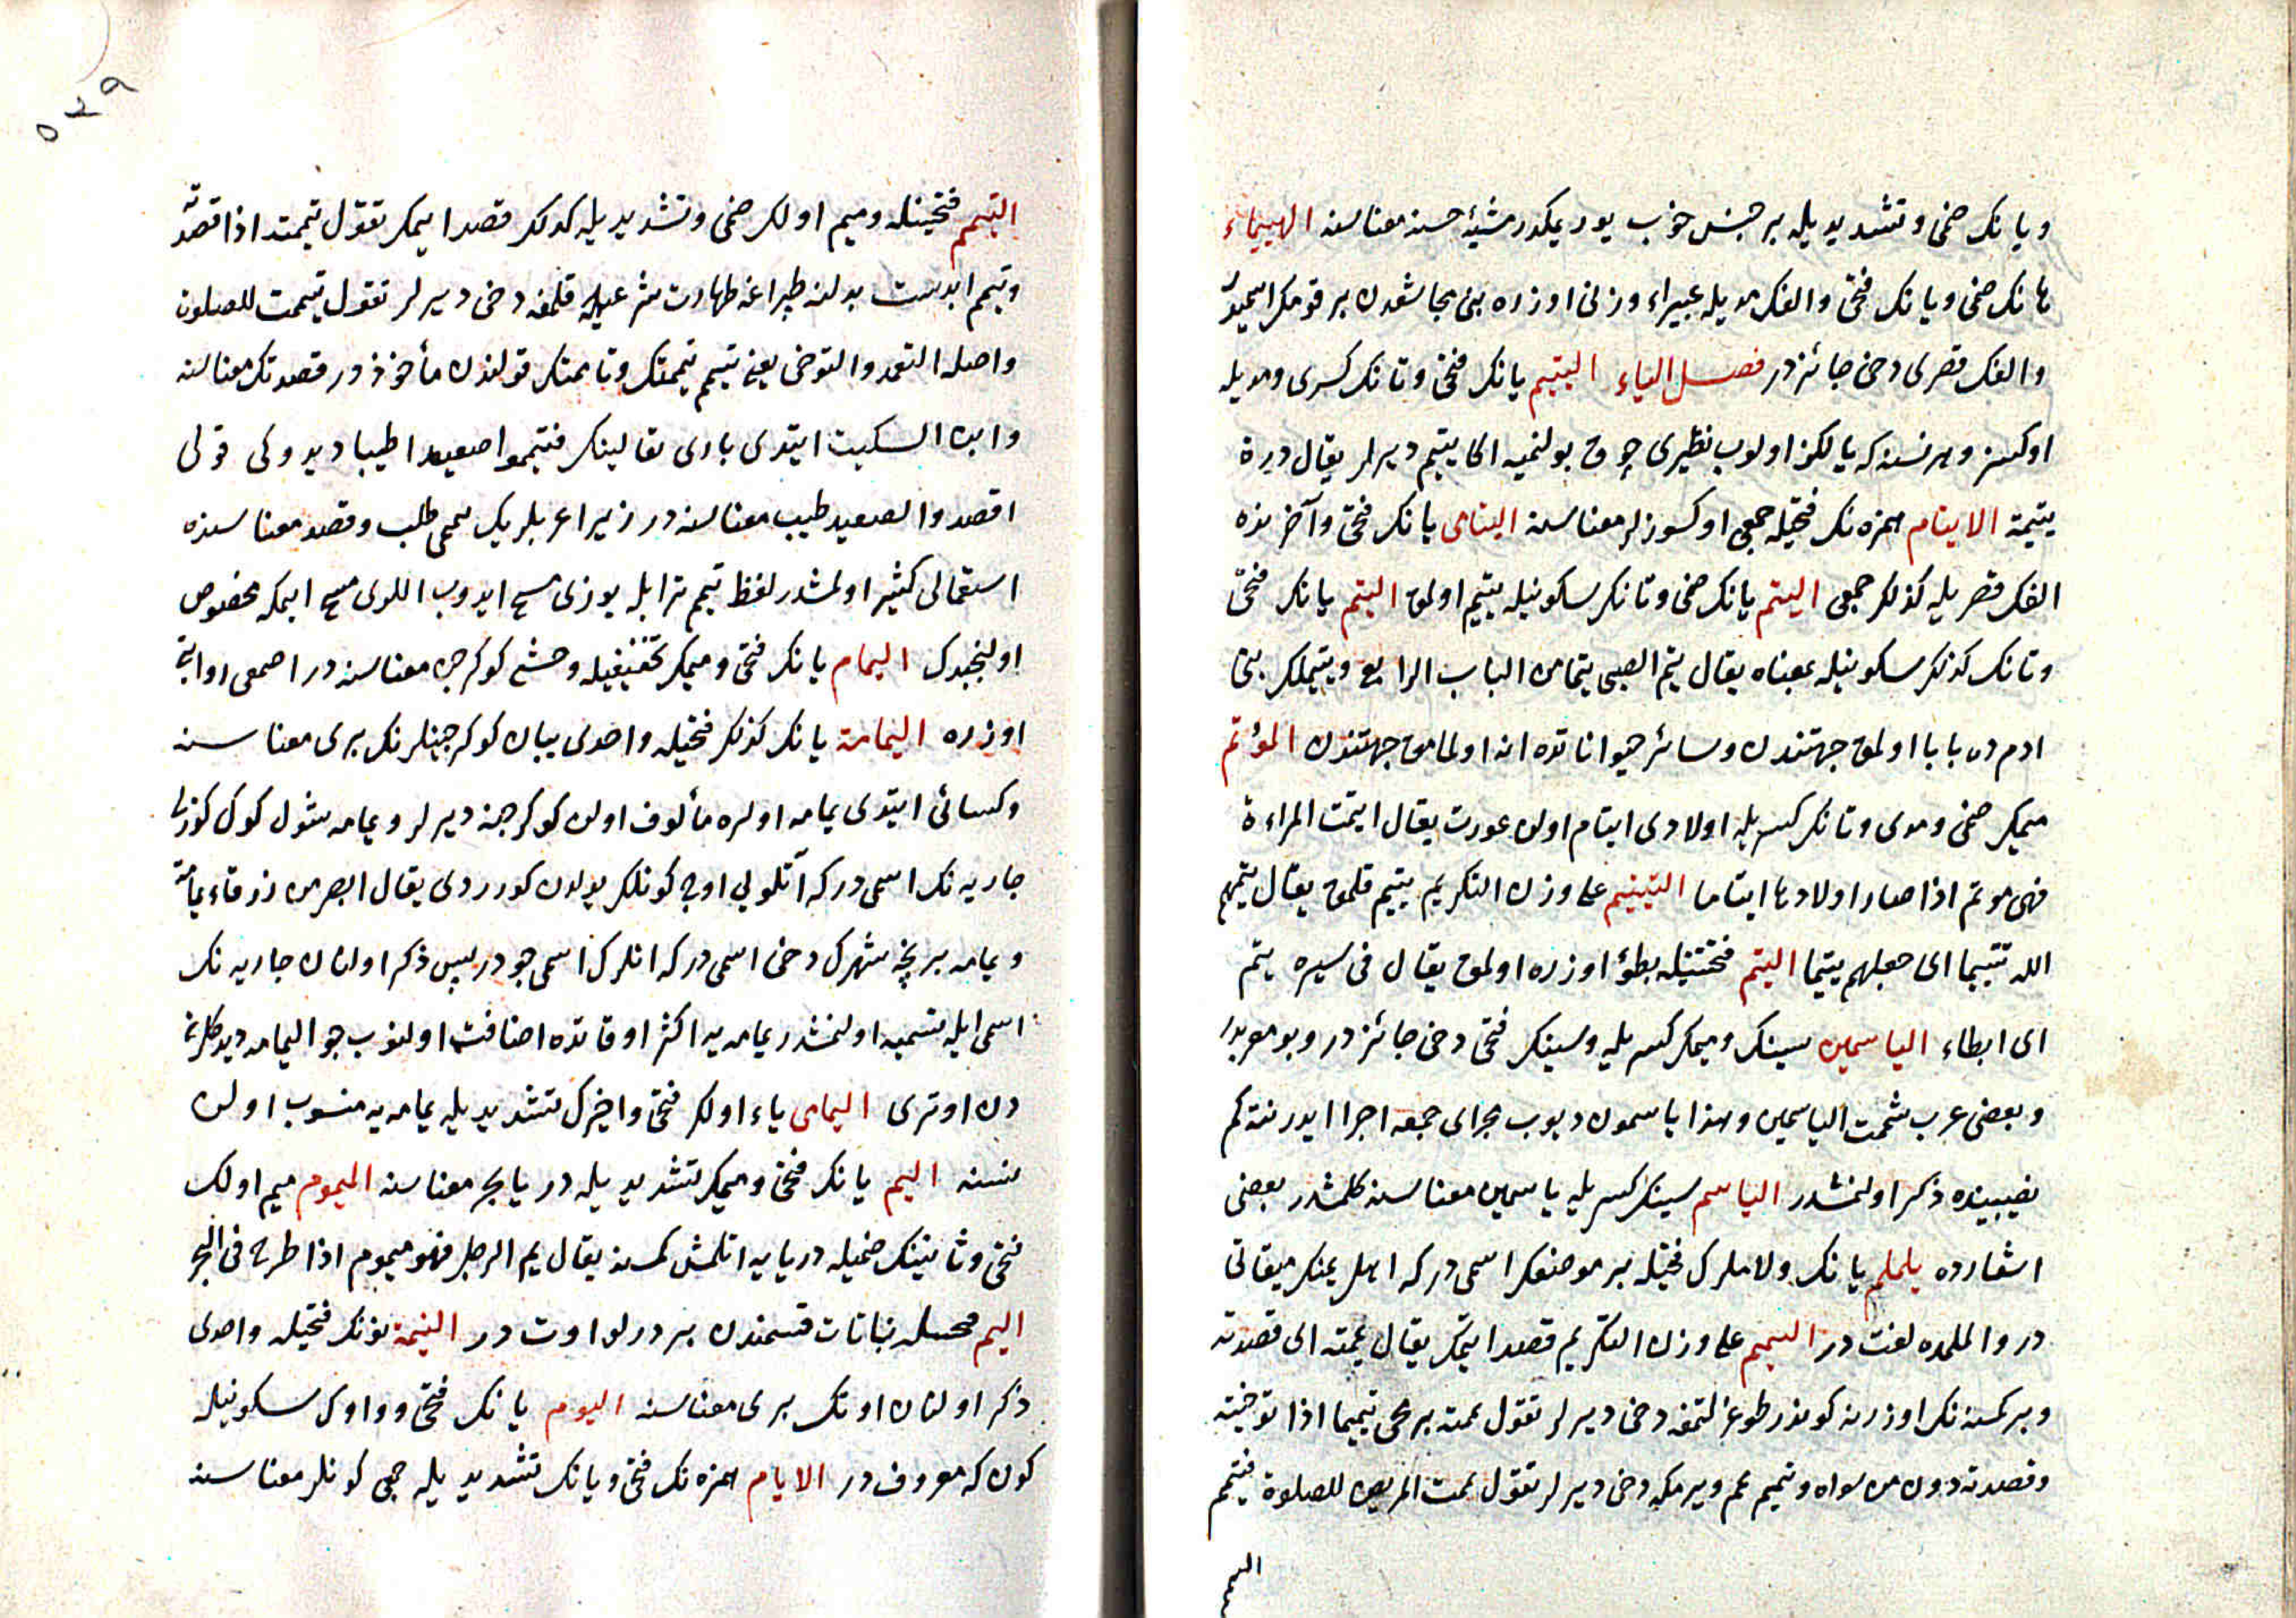 ویانك ضمی وتشدیدیله بر جنس خوب یوریمكدر مشیة حسنه معناسنه الهییماء
هانك ضمی ویانك فتحی والفك مدیله عبیراء وزنی اوزره بنی مجاشعدن بر قومك اسمیدر
والفك قصری دخی جائزدر فصل الیاء الیتیم یانك فتحی وتانك كسری ومدیله
اوكسز وهر نسنه كه یالكز اولوب نظیری چوق بولنمیه اكا یتیم دیرلر یقال درة
یتیمة الایتام همزه نك فتحیله جمعی اوكسوزلر معناسنه الیتامی یانك فتحی وآخرنده
الفك قصریله كذلك جمعی الیتم یانك ضمی وتانك سكونیله یتیم اولمق الیتم یانك فتحی
وتانك كذلك سكونیله بمعناه یقال یتم الصبی یتما من الباب الرابع ویتیملك بنی
ادمده بابا اولمق جهتندن وسائر حیواناتده انا اولمامق جهتندن المؤتم
میمك ضمی ومدی وتانك كسریله اولادی ایتام اولن عورت یقال ایتمت المراءة
فهی موتم اذا صار اولادها ایتاما التییتیم علی وزن التكریم یتیم قلمق یقال یتمهم
الله تتییما ای جعلهم یتیما الیتم فتحتینله بطؤ اوزره اولمق یقال فی سیره یتم
ای ابطاء الیاسمین سینك ومیمك كسریله وسینك فتحی دخی جائزدر وبو معربدر
وبعضی عرب شممت الیاسمین وهذا یاسمون دیوب مجرای جمعه اجرا ایدر نته كم
نصیبینده ذكر اولنمشدر الیاسم سینك كسریله یاسمین معناسنه كلمشدر بعضی
اشعارده یلملم یانك ولاملرك فتحیله بر موضعك اسمی در كه اهل یمنك میقاتی
در والملمده لغت در التیمیم علی وزن التكریم قصد ایتمك یقال یممته ای قصدته
وبر كمسنه نك اوزرینه كوندر طوغرلتمغه دخی دیرلر تقول یممته برمحی تیمیما اذا توخیته
وقصدته دون من سواه وتیمیم یمم ویرمكه دخی دیرلر تقول یممت المریض للصلوة فتیمم
التیمم
التیمم فتحتینله ومیم اولك ضمی وتشدیدیله كذلك قصد ایمك تقول تیممته اذا قصدته
وتیمم ابدست بدلنه طپراغه طهارت شرعیله قلمغه دخی دیرلر تقول تیممت للصلوة
واصله التعمد والتوخی یعنی تیمم تیممتك وتاممتك قولندن مأخوذدر قصدتك معناسنه
وابن السكیت ایتدی باری تعالینك فتیمموا صعیدا طیبا دیدوكی قولی
اقصدوا لصعید طیب معناسنه در زیرا عربلر یك یممی طلب وقصد معناسنده
استعمالی كثیر اولمشدر لفظ تیمم تراب ایله یوزی مسح ایدوب اللری مسح ایمكه مخصوص
اولنجیدك الیمام یانك فتحی ومیمك تخفیفیله وحشی كوكرجن معناسنه در اصمعی روایتی
اوزره الیمامة یانك كذلك فتحیله واحدی یبان كوكرجینلرنك بری معناسنه
وكسائی ایتدی یمامه اولره مألوف اولن كوكرجنه دیرلر ویمامه شول كوك كوزلی
جاریه نك اسمی در كه آتلویی اوچ كونلك یولدن كورردی یقال ابصر من زرقاء یمامة
ویمامه بر نچه شهرك دخی اسمی در كه انلرك اسمی جودر پس ذكر اولنان جاریه نك
اسمی ایله تسمیه اولنمشدر یمامه یه اكثر اوقاتده اضافت اولنوب جو الیمامه دیدكلری
دن اوتری الیمامی یاء اولك فتحی واخرك تشدیدیله یمامه یه منسوب اولن
نسنه الیم یانك فتحی ومیمك تشدیدیله دریا بحر معناسنه المیموم میم اولك
فتحی وثانینك ضمیله دریایه اتلمش كمسنه یقال یم الرجل فهو میموم اذا طرح فی البحر
الینم فتحتله نباتات قسمندن بر درلو اوت در الینمة نونك فتحیله واحدی
ذكر اولنان اوتك بری معناسنه الیوم یانك فتحی وواوك سكونیله
كون كه معروف در الایام همزه نك فتحی ویانك تشدیدیله جمعی كونلر معناسنه